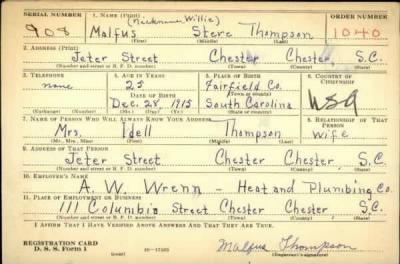 SERIAL NUMBER 1. NAME (Print) (Nickname Willie) ORDER NUMBER
908 Malfus Steve Thompson 1040
(First) (Middle) (Last)
2. ADDRESS (Print)
Jeter Street Chester Chester S.C.
(Number and street or R. F. D. number) (Town) (County) (State)
3. TELEPHONE 4. AGE IN YEARS 5. PLACE OF BIRTH 6. COUNTRY OF CITIZENSHIP
none 25 Fairfield Co.
DATE OF BIRTH (Town or county)
Dec. 28, 1915 South Carolina USA
(Exchange) (Number) (Mo.) (Day) (Yr.) (State or country)
7. NAME OF PERSON WHO WILL ALWAYS KNOW YOUR ADDRESS 8. RELATIONSHIP OF THAT PERSON
Mrs. Idell Thompson wife
(Mr., Mrs., Miss) (First) (Middle) (Last)
9. ADDRESS OF THAT PERSON
Jeter Street Chester Chester S.C.
(Number and street or R. F. D. number) (Town) (County) (State)
10. EMPLOYER'S NAME
A. W. Wrenn - Heat and Plumbing Co.
11. PLACE OF EMPLOYMENT OR BUSINESS
111 Columbia Street Chester Chester S.C.
(Number and street or R. F. D. number) (Town) (County) (State)
I AFFIRM THAT I HAVE VERIFIED ABOVE ANSWERS AND THAT THEY ARE TRUE.
REGISTRATION CARD
D. S. S. Form 1 (over) Malfus Thompson
(Registrant's signature)